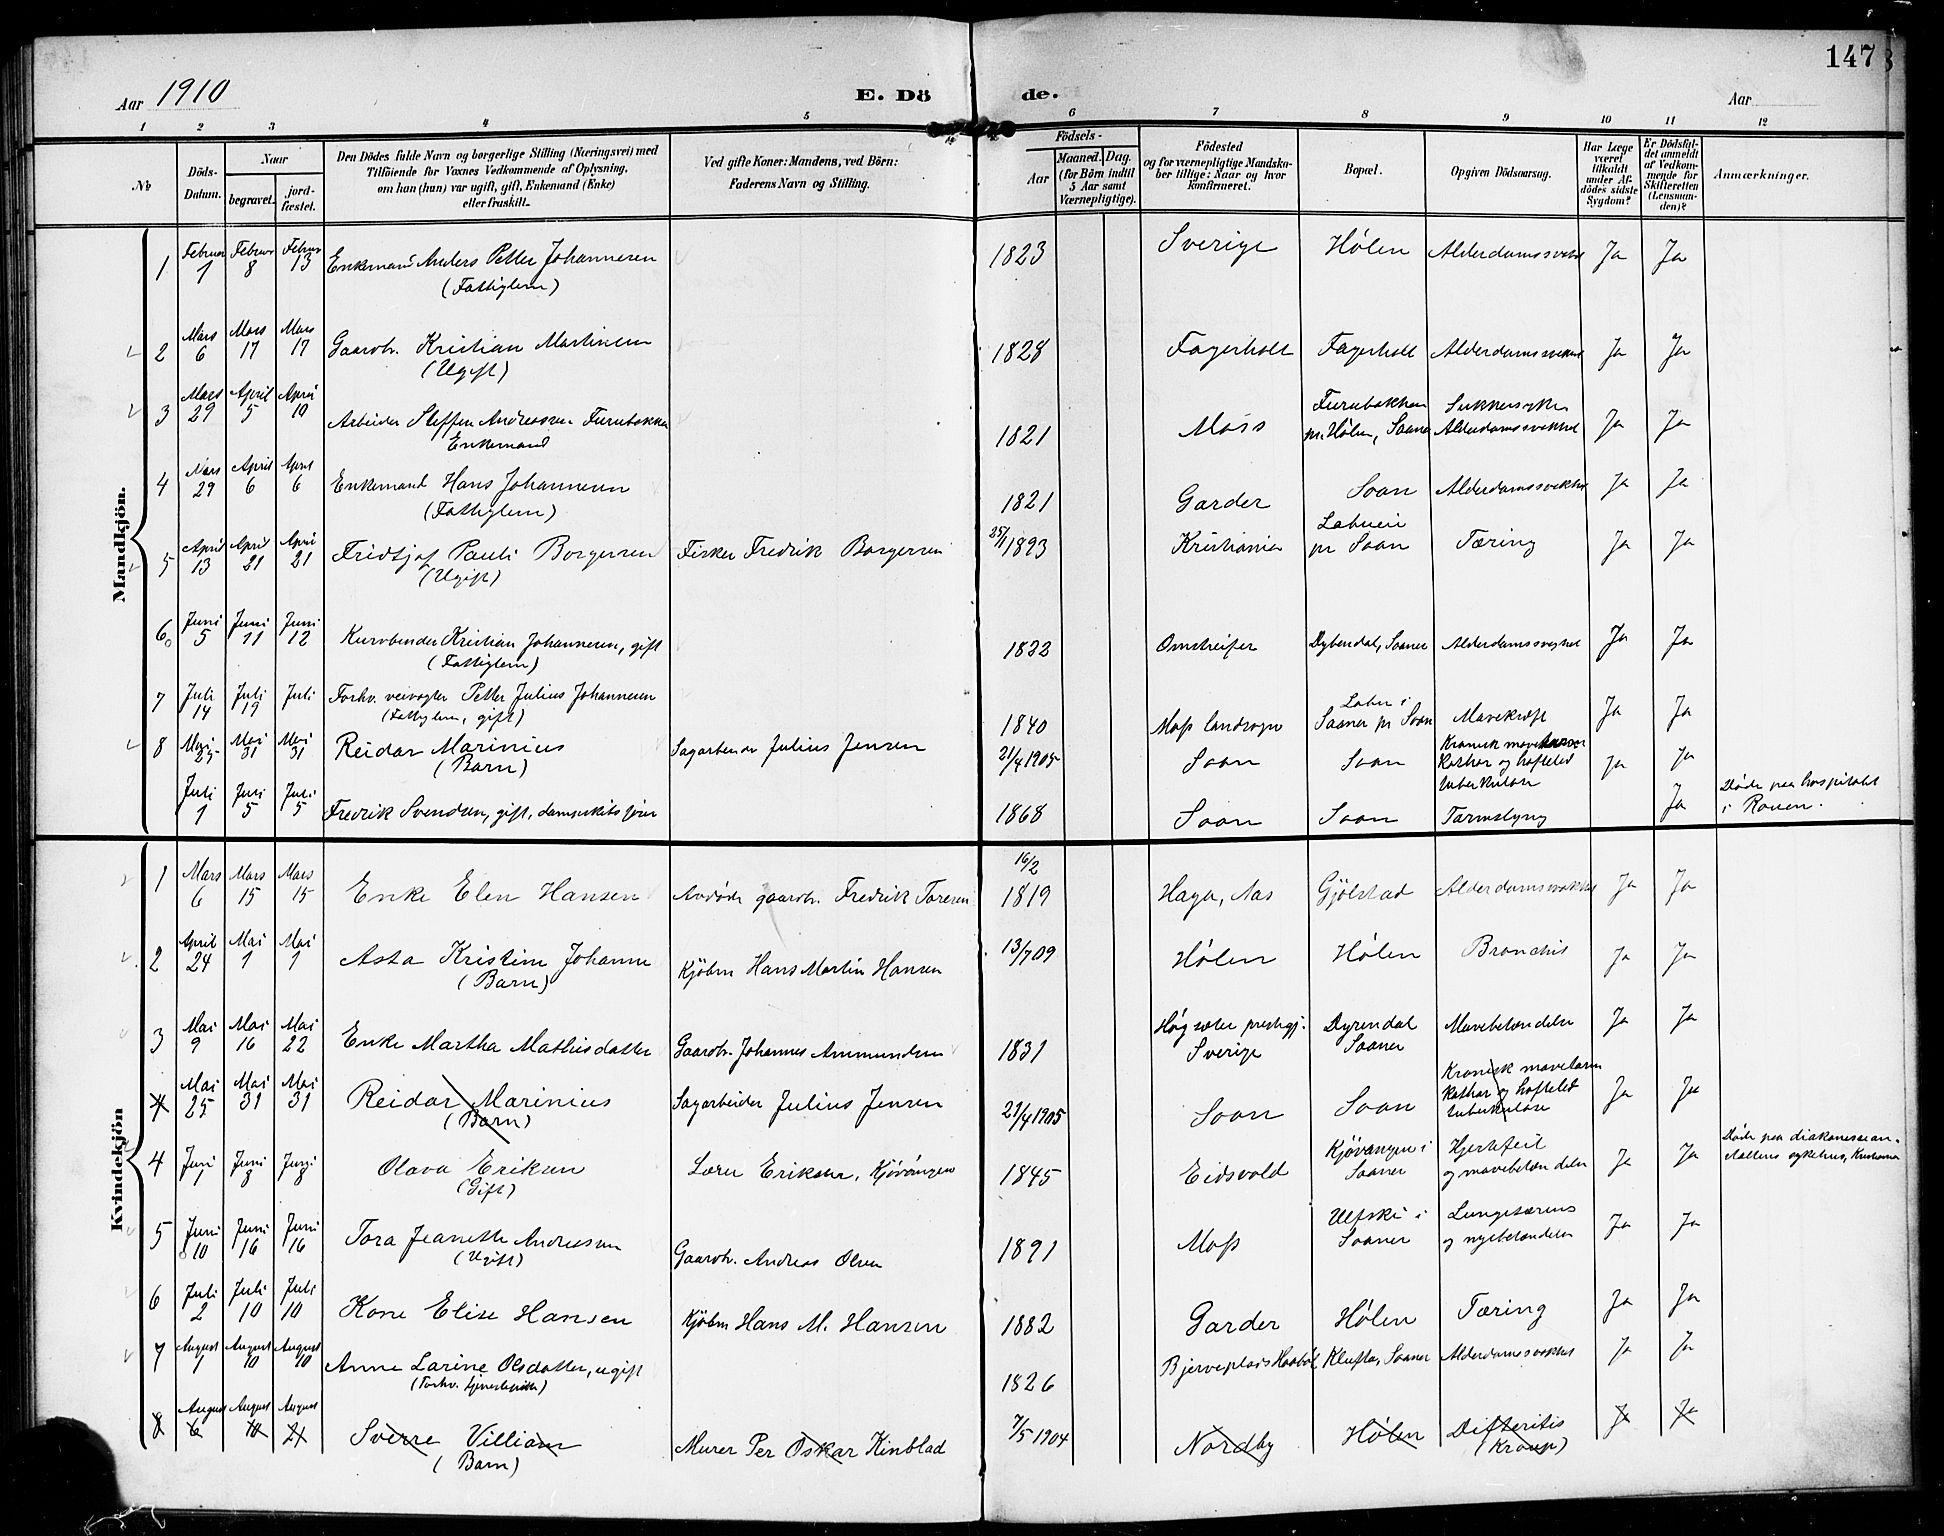 147
Aar 1910
E. Döde.
Aar
1 2 3 4 5 6 7 8 9 10 11 12
No
Döds-Datum.
Naar
begravet.
jord-fæstet.
Den Dödes fulde Navn og borgerlige Stilling (Næringsvei) med
Tilföiende for Voxnes Vedkommende af Oplysning,
om han (hun) var ugift, gift, Enkemand (Enke)
eller fraskilt.
Ved gifte Koner: Mandens, ved Börn:
Faderens Navn og Stilling.
Födsels-
Aar
Maaned. Dag.
(for Börn indtil
5 Aar samt
Værnepligtige).
Födested
og for værnepligtige Mandska-
ber tillige: Naar og hvor
konfirmeret.
Bopæl.
Opgiven Dödsaarsag.
Har Læge
været
tilkaldt
under Af-
dödes sidste
Sygdom?
Er Dödsfal-
det anmeldt
af Vedkom-
mende for
Skifteretten
(Lensman-
den)?
Anmærkninger.
Mandkjön.
1 Februar 1 Februar 8 Februar 13 Enkemand Anders Petter Johannesen 1823 Sverige Hölen Alderdomssvekkel Ja Ja
(Fattiglem)
2 Mars 6 Mars 17 Mars 17 Gaardbr. Kristian Martinsen 1828 Fagerholt Fagerholt Alderdomssvekkel Ja Ja
(Ugift)
3 Mars 29 April 5 April 10 Arbeider Steffen Andreassen Furubakken 1821 Moss Furubakken pr. Hölen, Saaner Sukkersyke Alderdomssvekkel Ja Ja
Enkemand
4 Mars 29 April 6 April 6 Enkemand Hans Johannesen 1821 Garder Soon Alderdomssvekkel Ja Ja
(Fattiglem)
5 April 13 April 21 April 21 Fridtjof Pauli Borgersen Fisker Fredrik Borgersen 25/1 1893 Kristiania pr Soon Tæring Ja Ja
(Ugift)
6 Juni 5 Juni 11 Juni 12 Kurvbinder Kristian Johannesen, gift 1822 Omstreifer Dybendal, Saaner Alderdomssvekkel Ja Ja
(Fattiglem)
7 Juli 14 Juli 19 Juli Forhv. veivogter Petter Julius Johannesen 1840 Moss landsogn Saaner pr Soon Mavekræft Ja Ja
(Fattiglem, gift)
8 Mai 25 Mai 31 Mai 31 Reidar Marinius Sagarbeider Julius Jensen 21/4 1905 Soon Soon Kronisk mavetarm Kathar og hofteled tuberkulose Ja Ja
(Barn)
Juli 1 Juli 5 Juli 5 Fredrik Svendsen, gift, damskibsfører 1868 Soon Soon Tarmslyng Ja Døde paa hospitalet i Rouen.
Kvindekjön
1 Mars 6 Mars 15 Mars 15 Enke Elen Hansen Avdöde gaardbr. Fredrik Toresen 16/2 1819 Haga, Aas Gjölstad Alderdomssvekkel Ja Ja
2 April 24 Mai 1 Mai 1 Asta Kristine Johanne Kjöbm Hans Martin Hansen 13/7 09 Hölen Hölen Bronchit Ja Ja
(Barn)
3 Mai 9 Mai 16 Mai 22 Enke Martha Mathisdatter Gaardbr. Johannes Ammundsen 1831 Högsäter prestegj. Sverige Dyrendal Saaner Mavebetændelse Ja Ja
4 Mai 25 Mai 31 Mai 31 Reidar Marinius Sagarbeider Julius Jensen 21/4 1905 Soon Soon Kronisk mavetarm Kathar og hofteled tuberkulose Ja Ja
(Barn)
4 Juni 1 Juni 8 Juni 8 Olava Eriksen Lærer Eriksen, Kjövangen 1845 Eidsvold Kjövangen i Saaner Hjertefeil og mavebetændelse Ja Ja Døde paa diakonissean-staltens sykehus, Kristiania
(Gift)
5 Juni 10 Juni 16 Juni 16 Tora Jeanette Andreassen Gaardbr. Andreas Olsen 1891 Moss Ulfski i Saaner Lungetæring og nyrebetændelse Ja Ja
(Ugift)
6 Juli 2 Juli 10 Juli 10 Kone Elise Hansen Kjöbm Hans M. Hansen 1882 Garder Hölen Tæring Ja Ja
7 August 1 August 10 August 10 Anne Larine Olsdatter, ugift 1826 Bjerveplads Haaböl Klufta, Saaner Alderdomssvekkel Ja Ja
(Forhv. tjenestepike)
8 August 6 August 10 August 21 Sverre Villiam Murer Per Oskar Kinblad 7/5 1904 Nordby Hölen Difteritis (Kroup) Ja Ja
(Barn)